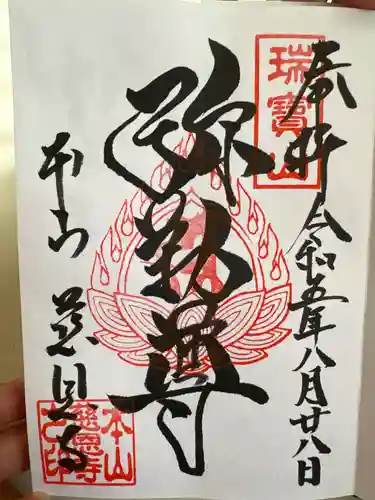 奉拝
令和五年八月廿八日
瑞寶山
弥勒尊
本山
慈恩寺
本山
慈恩寺
之印